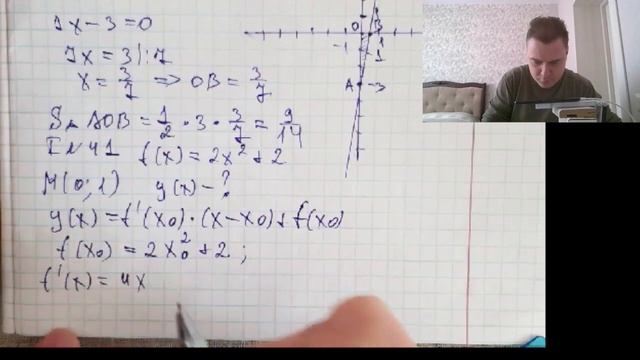 7x-3=0
7x=3|:7
x=3/7 => OB=3/7
S△AOB=1/2•3•3/7=9/14
f(x)=2x²+2
M(0;1) y(x)-?
y(x)=f'(x₀)•(x-x₀)+f(x₀)
f(x₀)=2x₀²+2;
f'(x)=4x
O
B
1
-1
1
A
-3